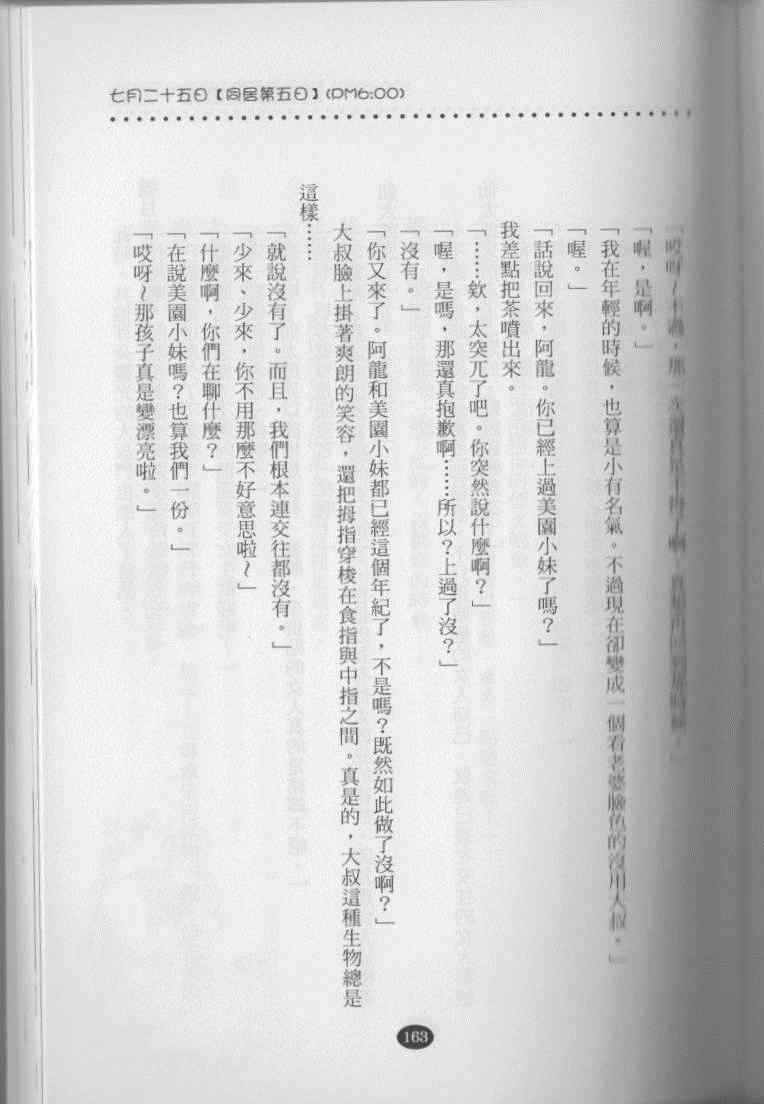 七月二十五日【同居第五日】(PM6:00)
「哎呀～不過，那
「喔，是啊。」
「我在年輕的時候，也算是小有名氣。不過現在卻變成一個看老婆臉色的沒用大叔。」
「喔。」
「話說回來，阿龍。你已經上過美園小妹了嗎？」
我差點把茶噴出來。
「……欸，太突兀了吧。你突然說什麼啊？」
「喔，是嗎，那還真抱歉啊……所以？上過了沒？」
「沒有。」
「你又來了。阿龍和美園小妹都已經這個年紀了，不是嗎？既然如此做了沒啊？」
大叔臉上掛著爽朗的笑容，還把拇指穿梭在食指與中指之間。真是的，大叔這種生物總是
這樣……
「就說沒有了。而且，我們根本連交往都沒有。」
「少來、少來，你不用那麼不好意思啦～」
「什麼啊，你們在聊什麼？」
「在說美園小妹嗎？也算我們一份。」
「哎呀～那孩子真是變漂亮啦。」
163